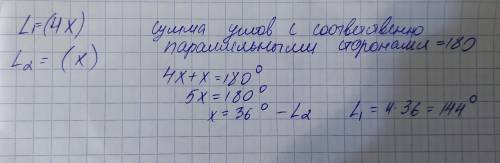 L₁=(4x)
L₂ = (x)
сумма углов с соответственно
параллельными сторонами =180
4x+x=180°
5x=180°
x=36° – L₂
L₁=4·36=144°